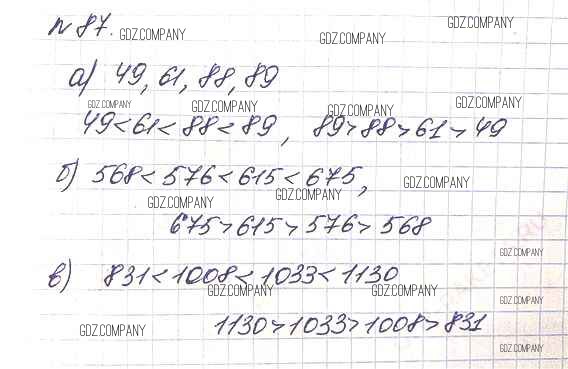 № 87. GDZ.COMPANY GDZ.COMPANY GDZ.COMPANY
а) 49, 61, 88, 89
GDZ.COMPANY GDZ.COMPANY GDZ.COMPANY GDZ.COMPANY
49 < 61 < 88 < 89, 89 > 88 > 61 > 49
б) 568 < 576 < 615 < 675, GDZ.COMPANY
GDZ.COMPANY GDZ.COMPANY
675 > 615 > 576 > 568
GDZ.COMPANY
в) 831 < 1008 < 1033 < 1130
GDZ.COMPANY GDZ.COMPANY GDZ.COMPANY
1130 > 1033 > 1008 > 831
GDZ.COMPANY GDZ.COMPANY